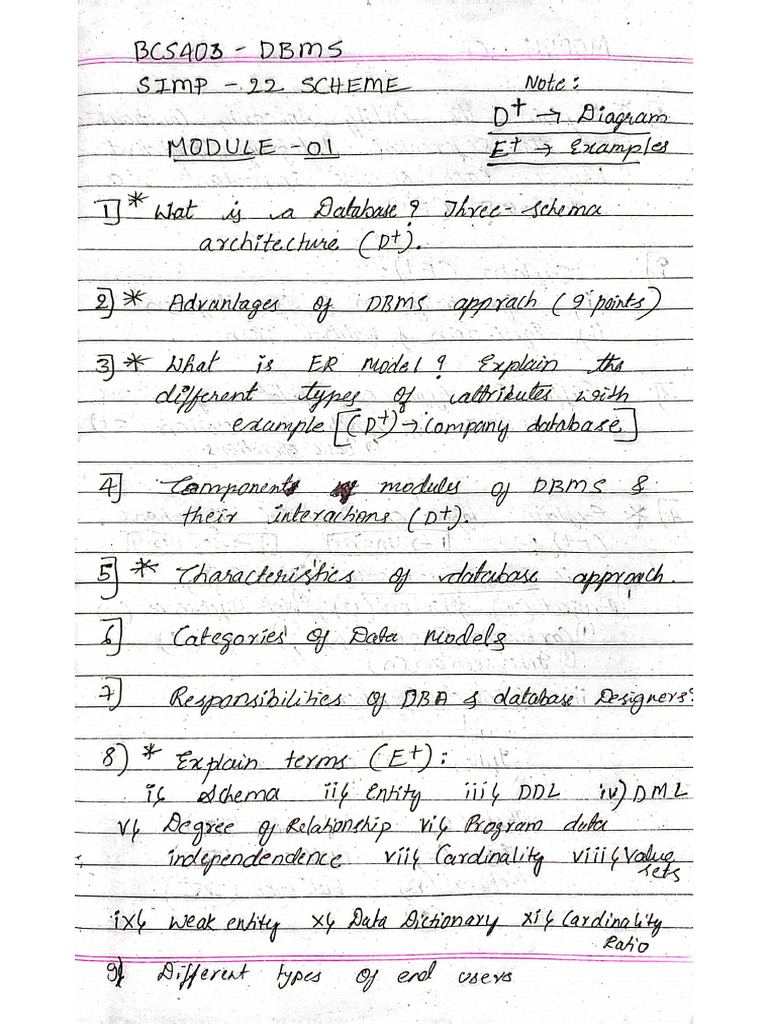 BCS403 - DBMS
SIMP - 22 SCHEME
Note:
D+ → Diagram
MODULE - 01
E+ → Examples
1] * Wat is a Database? Three-schema
architecture (D+).
2] * Advantages of DBMS apprach (9 points)
3] * What is ER Model? Explain the
different types of attributes with
example [(D+) → Company database]
4] Components of modules of DBMS &
their interactions (D+).
5] * Characteristics of database approach.
6] Categories of Data Models
7] Responsibilities of DBA & database Designers?
8) * Explain terms (E+):
i) Schema ii) Entity iii) DDL iv) DML
v) Degree of Relationship vi) Program data
independendence vii) Cardinality viii) Value
sets
ix) Weak entity x) Data Dictionary xi) Cardinality
Ratio
9) Different types of end users